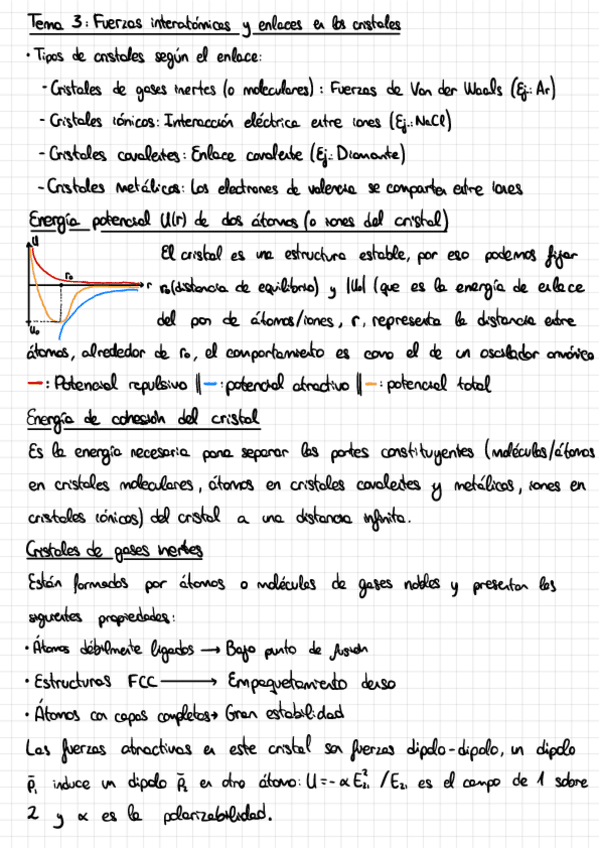 Tema 3: Fuerzas interatómicas y enlaces en los cristales
· Tipos de cristales según el enlace:
- Cristales de gases inertes (o moleculares): Fuerzas de Van der Waals (Ej.: Ar)
- Cristales iónicos: Interacción eléctrica entre iones (Ej.: NaCl)
- Cristales covalentes: Enlace covalente (Ej.: Diamante)
- Cristales metálicos: Los electrones de valencia se comparten entre iones
Energía potencial U(r) de dos átomos (o iones del cristal)
U
r₀
r
U₀
El cristal es una estructura estable, por eso podemos fijar
r₀ (distancia de equilibrio) y |U₀| (que es la energía de enlace
del par de átomos/iones, r, representa la distancia entre
átomos, alrededor de r₀, el comportamiento es como el de un oscilador armónico
—: Potencial repulsivo || —: potencial atractivo || —: potencial total
Energía de cohesión del cristal
Es la energía necesaria para separar las partes constituyentes (moléculas/átomos
en cristales moleculares, átomos en cristales covalentes y metálicos, iones en
cristales iónicos) del cristal a una distancia infinita.
Cristales de gases inertes
Están formados por átomos o moléculas de gases nobles y presentan las
siguientes propiedades:
· Átomos débilmente ligados → Bajo punto de fusión
· Estructuras FCC → Empaquetamiento denso
· Átomos con capas completas → Gran estabilidad
Las fuerzas atractivas en este cristal son fuerzas dipolo-dipolo, un dipolo
p̄₁ induce un dipolo p̄₂ en otro átomo: U = - α E²₂₁ / E₂₁ es el campo de 1 sobre
2 y α es la polarizabilidad.